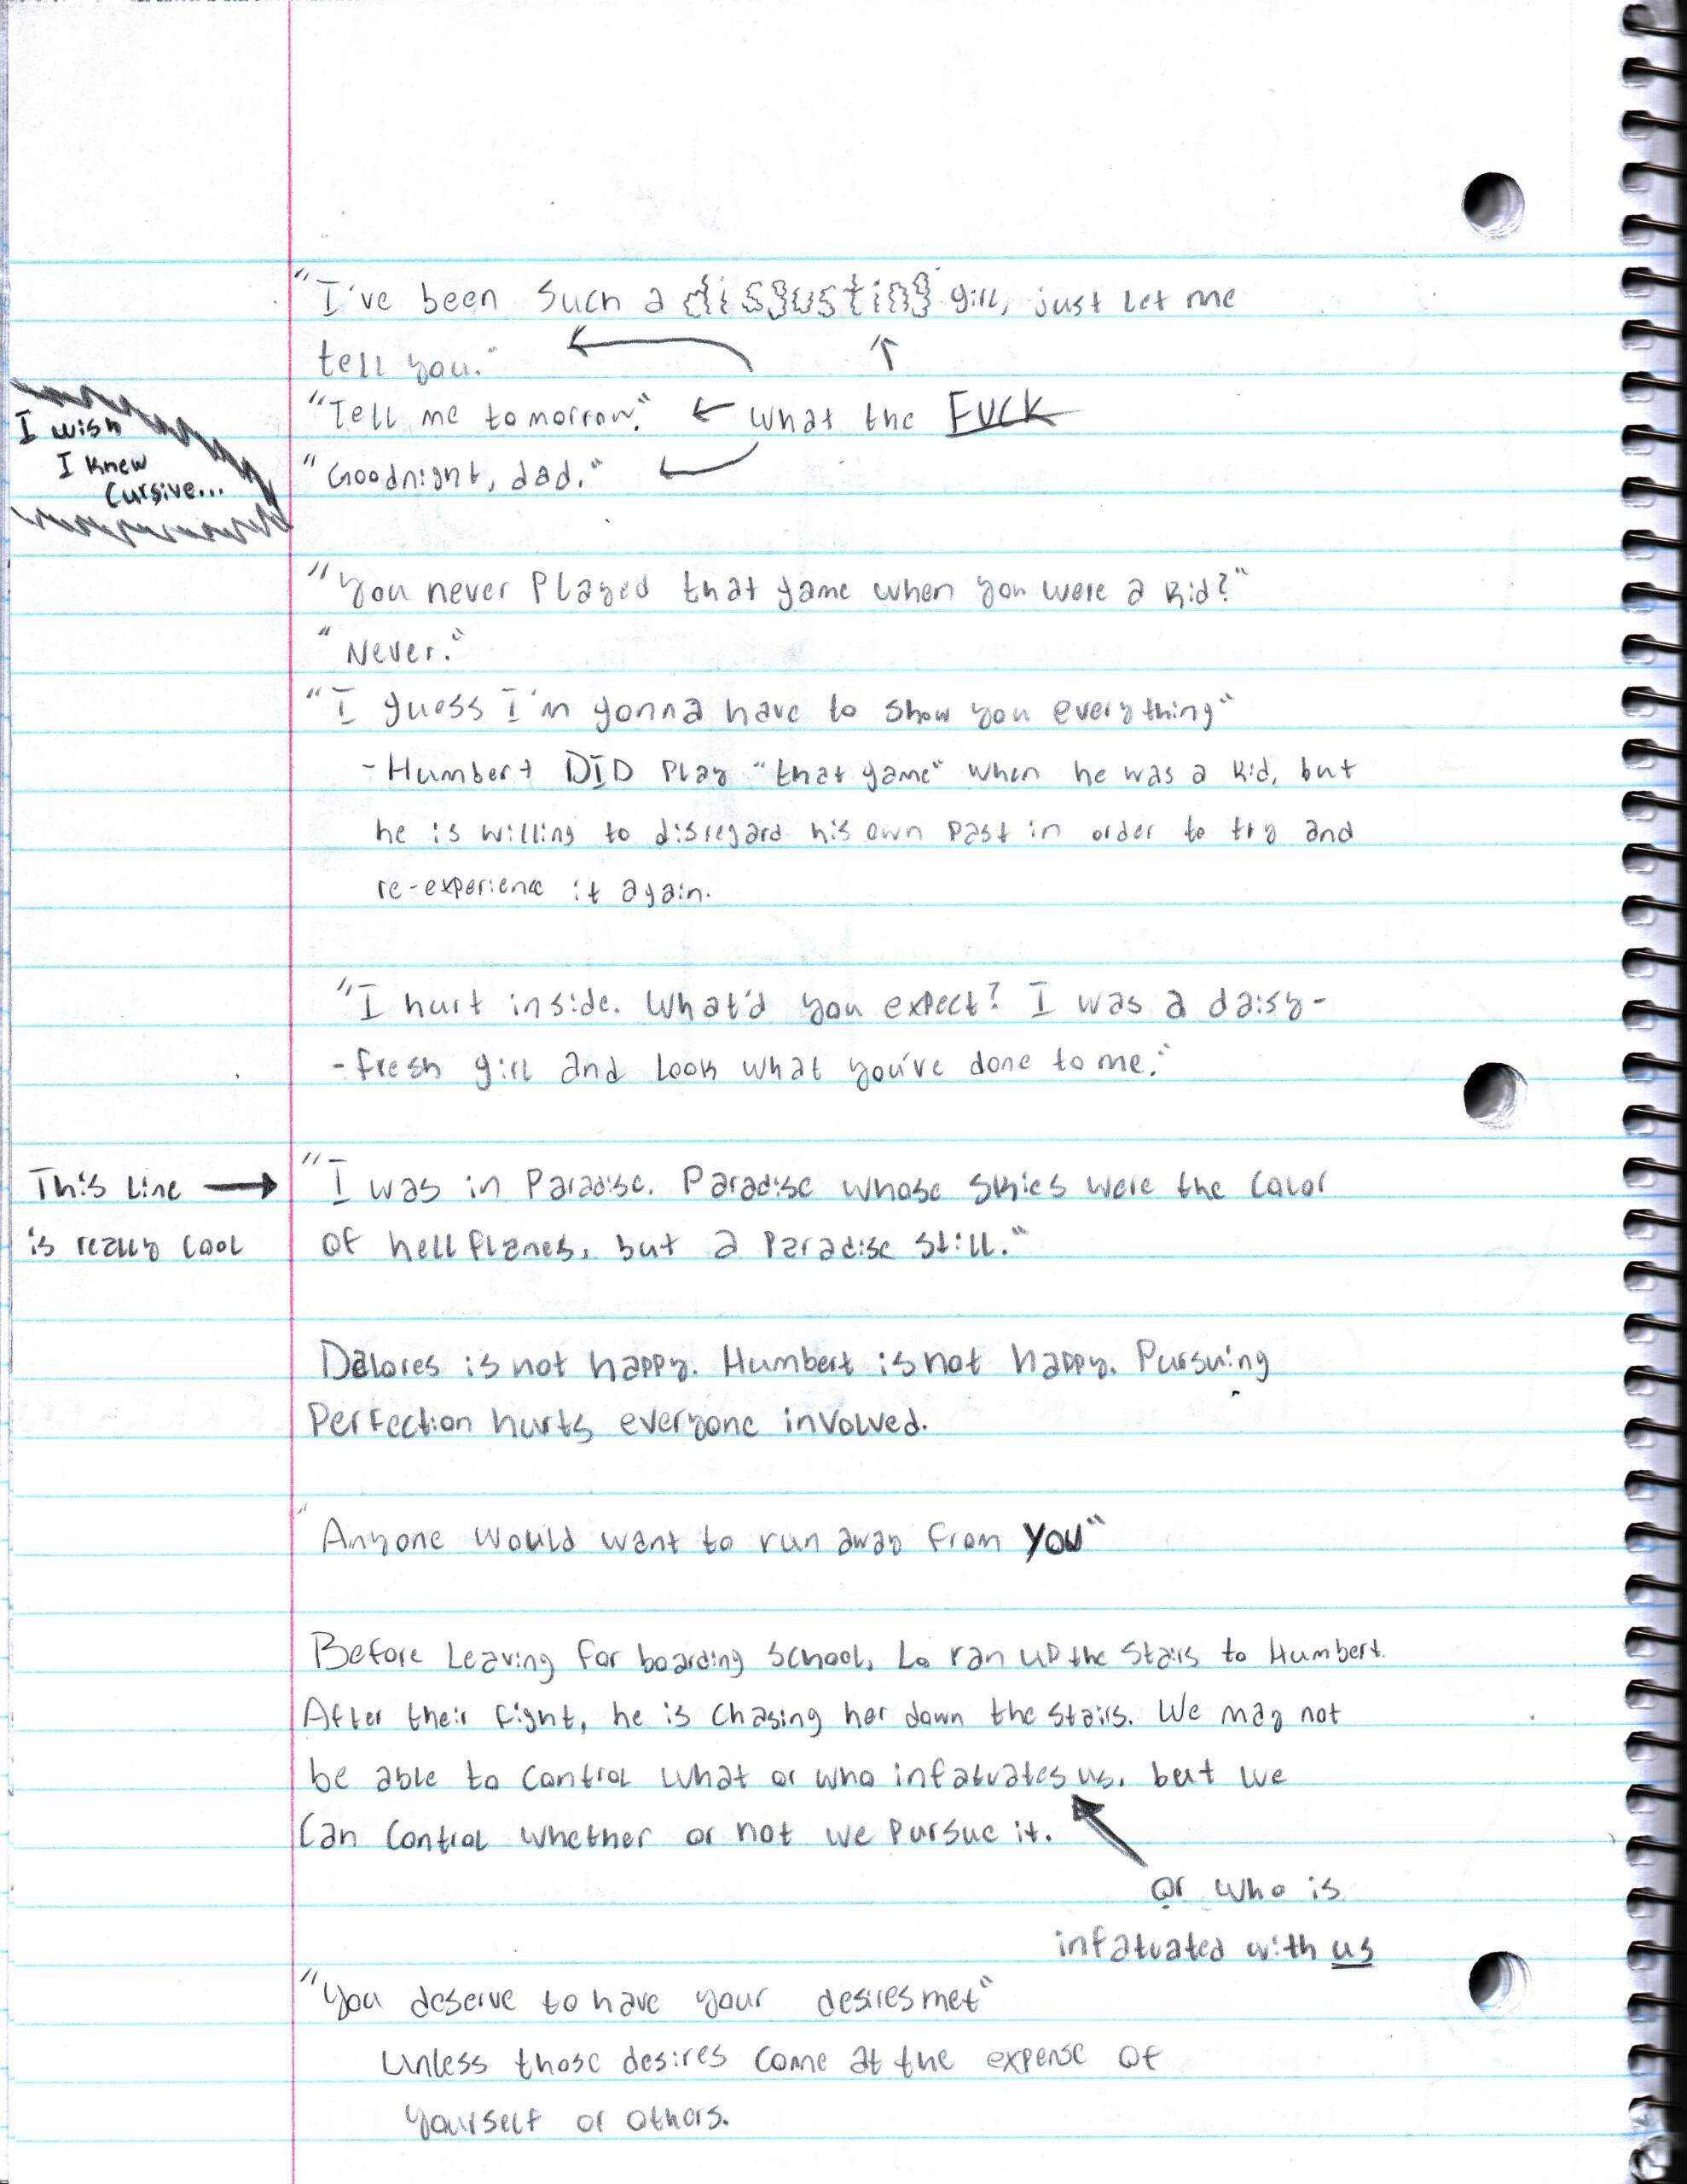 "I've been such a disgusting girl, just let me
tell you."
"Tell me tomorrow." ← what the FUCK
"Goodnight, dad."
I wish
I knew
cursive...
"You never played that game when you were a kid?"
"Never."
"I guess I'm gonna have to show you everything"
- Humbert DID play "that game" when he was a kid, but
he is willing to disregard his own past in order to try and
re-experience it again.
"I hurt inside. What'd you expect? I was a daisy-
-fresh girl and look what you've done to me."
This line →
is really cool
"I was in Paradise. Paradise whose skies were the color
of hell flames, but a Paradise still."
Dalores is not happy. Humbert is not happy. Pursuing
Perfection hurts everyone involved.
"Anyone would want to run away from YOU"
Before leaving for boarding school, Lo ran up the stairs to Humbert.
After their fight, he is chasing her down the stairs. We may not
be able to control what or who infatuates us, but we
can control whether or not we pursue it.
or who is
infatuated with us
"You deserve to have your desires met"
unless those desires come at the expense of
yourself or others.